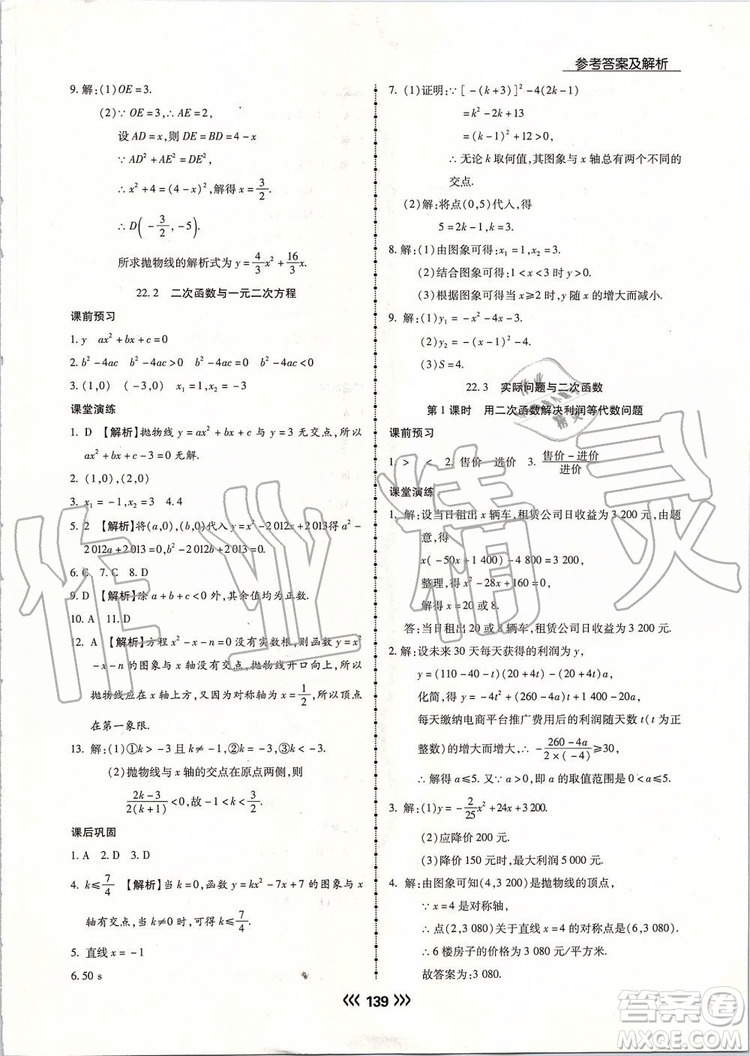 参考答案及解析
9. 解:(1)OE=3.
(2)∵OE=3,∴AE=2.
设AD=x,则DE=BD=4-x
∵AD²+AE²=DE²,
∴x²+4=(4-x)²,解得x=3/2.
∴D(-3/2,-5).
所求抛物线的解析式为y=4/3x²+16/3x.
22.2 二次函数与一元二次方程
课前预习
1. y ax²+bx+c=0
2. b²-4ac b²-4ac>0 b²-4ac=0 b²-4ac<0
3. (1,0) (-3,0) x₁=1 x₂=-3
课堂演练
1. D 【解析】抛物线y=ax²+bx+c与x轴无交点,所以
ax²+bx+c=0无解.
2. (1,0),(2,0)
3. x₁=-1,x₂=3 4.4
5. 2 【解析】将(a,0),(b,0)代入y=x²-2012x+2013得a²-
2012a+2013=0,b²-2012b+2013=0.
6. C 7. C 8. D
9. D 【解析】除a+b+c<0外,其余值均为正数.
10. A 11. D
2. A 【解析】方程x²-x-n=0没有实数根,则函数y=x²
-x-n的图象与x轴没有交点,抛物线开口向上,所以
抛物线应在x轴上方,又因为对称轴为x=1/2,所以顶点
在第一象限.
13. 解:(1)①k>-3且k≠-1,②k=-3,③k<-3
(2)抛物线与x轴的交点在原点两侧,则
(2k-3)/(2(k+1))<0,故-1<k<3/2.
课后巩固
1. A 2. D 3. D
4. k≤7/4 【解析】当k=0,函数y=kx²-7x+7的图象与x
轴有交点.当k≠0时,可得k≤7/4.
5. 直线x=-1
6.50 s
7. (1)证明:∵[-(k+3)]²-4(2k-1)
=k²-2k+13
=(k-1)²+12>0,
∴无论k取何值,其图象与x轴总有两个不同的
交点.
(2)解:将点(0,5)代入,得
5=2k-1,k=3.
8. 解:(1)由图象可得:x₁=1,x₂=3.
(2)结合图象可得:1<x<3时y>0.
(3)根据图象可得:x≥2时,y随x的增大而减小.
9. 解:(1)y₁=-x²+4.
(2)y₂=-x²+2x.
(3)S=4.
22.3 实际问题与二次函数
第1课时 用二次函数解决利润等代数问题
课前预习
1. > < 2. 售价 进价 3. (售价-进价)/进价
课堂演练
1. 解:设当日租出x辆车,租赁公司日收益为3 200元,由题
意,得
x(-50x+1 400)-4 800=3 200,
整理,得x²-28x+160=0,
解得x=20或8.
答:当日租出20或8辆车,租赁公司日收益为3 200元.
2. 解:设未来30天每天获得的利润为y,
y=(110-40-t)(20+4t)-(20+4t)a,
化简,得y=-4t²+(260-4a)t+1 400-20a,
每天缴纳电商平台推广费用后的利润随天数t(t为正
整数)的增大而增大,∴-(260-4a)/(2×(-4))≥30,
解得a≤5.又∵a>0,即a的取值范围是0<a≤5.
3. 解:(1)y=-2/25x²+24x+3 200.
(2)应降价200元.
(3)降价150元时,最大利润是5 000元.
4. 解:由图象可知(4,3 200)是抛物线的顶点,
∵x=4是对称轴,
∴点(2,3 080)关于直线x=4的对称点是(6,3 080).
∴6楼房子的价格为3 080元/平方米.
故答案为:3 080.
139
作业精灵
答案圈
MXQE.COM